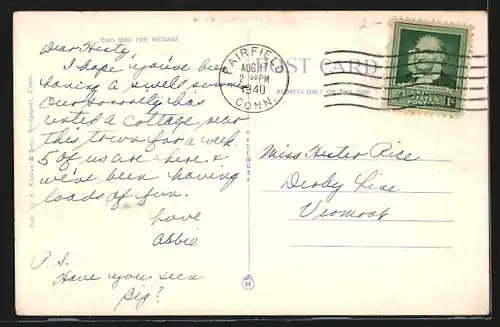 THIS SIDE FOR MESSAGE
Dear Hesty,
I hope you've been
having a swell summer.
Our sorority has
rented a cottage near
this town for a week.
5 of us are here &
we've been having
loads of fun.
Love
Abbie
P.S.
Have you seen
Big?
Pub. by
Bridgeport, Conn.
MADE IN U.S.A.
M
POST CARD
ADDRESS ONLY ON THIS SIDE
FAIRFIELD
AUG 17
2 PM
1940
CONN.
UNITED STATES
POSTAGE
1¢
2-
Miss Hester Rice
Derby Line
Vermont